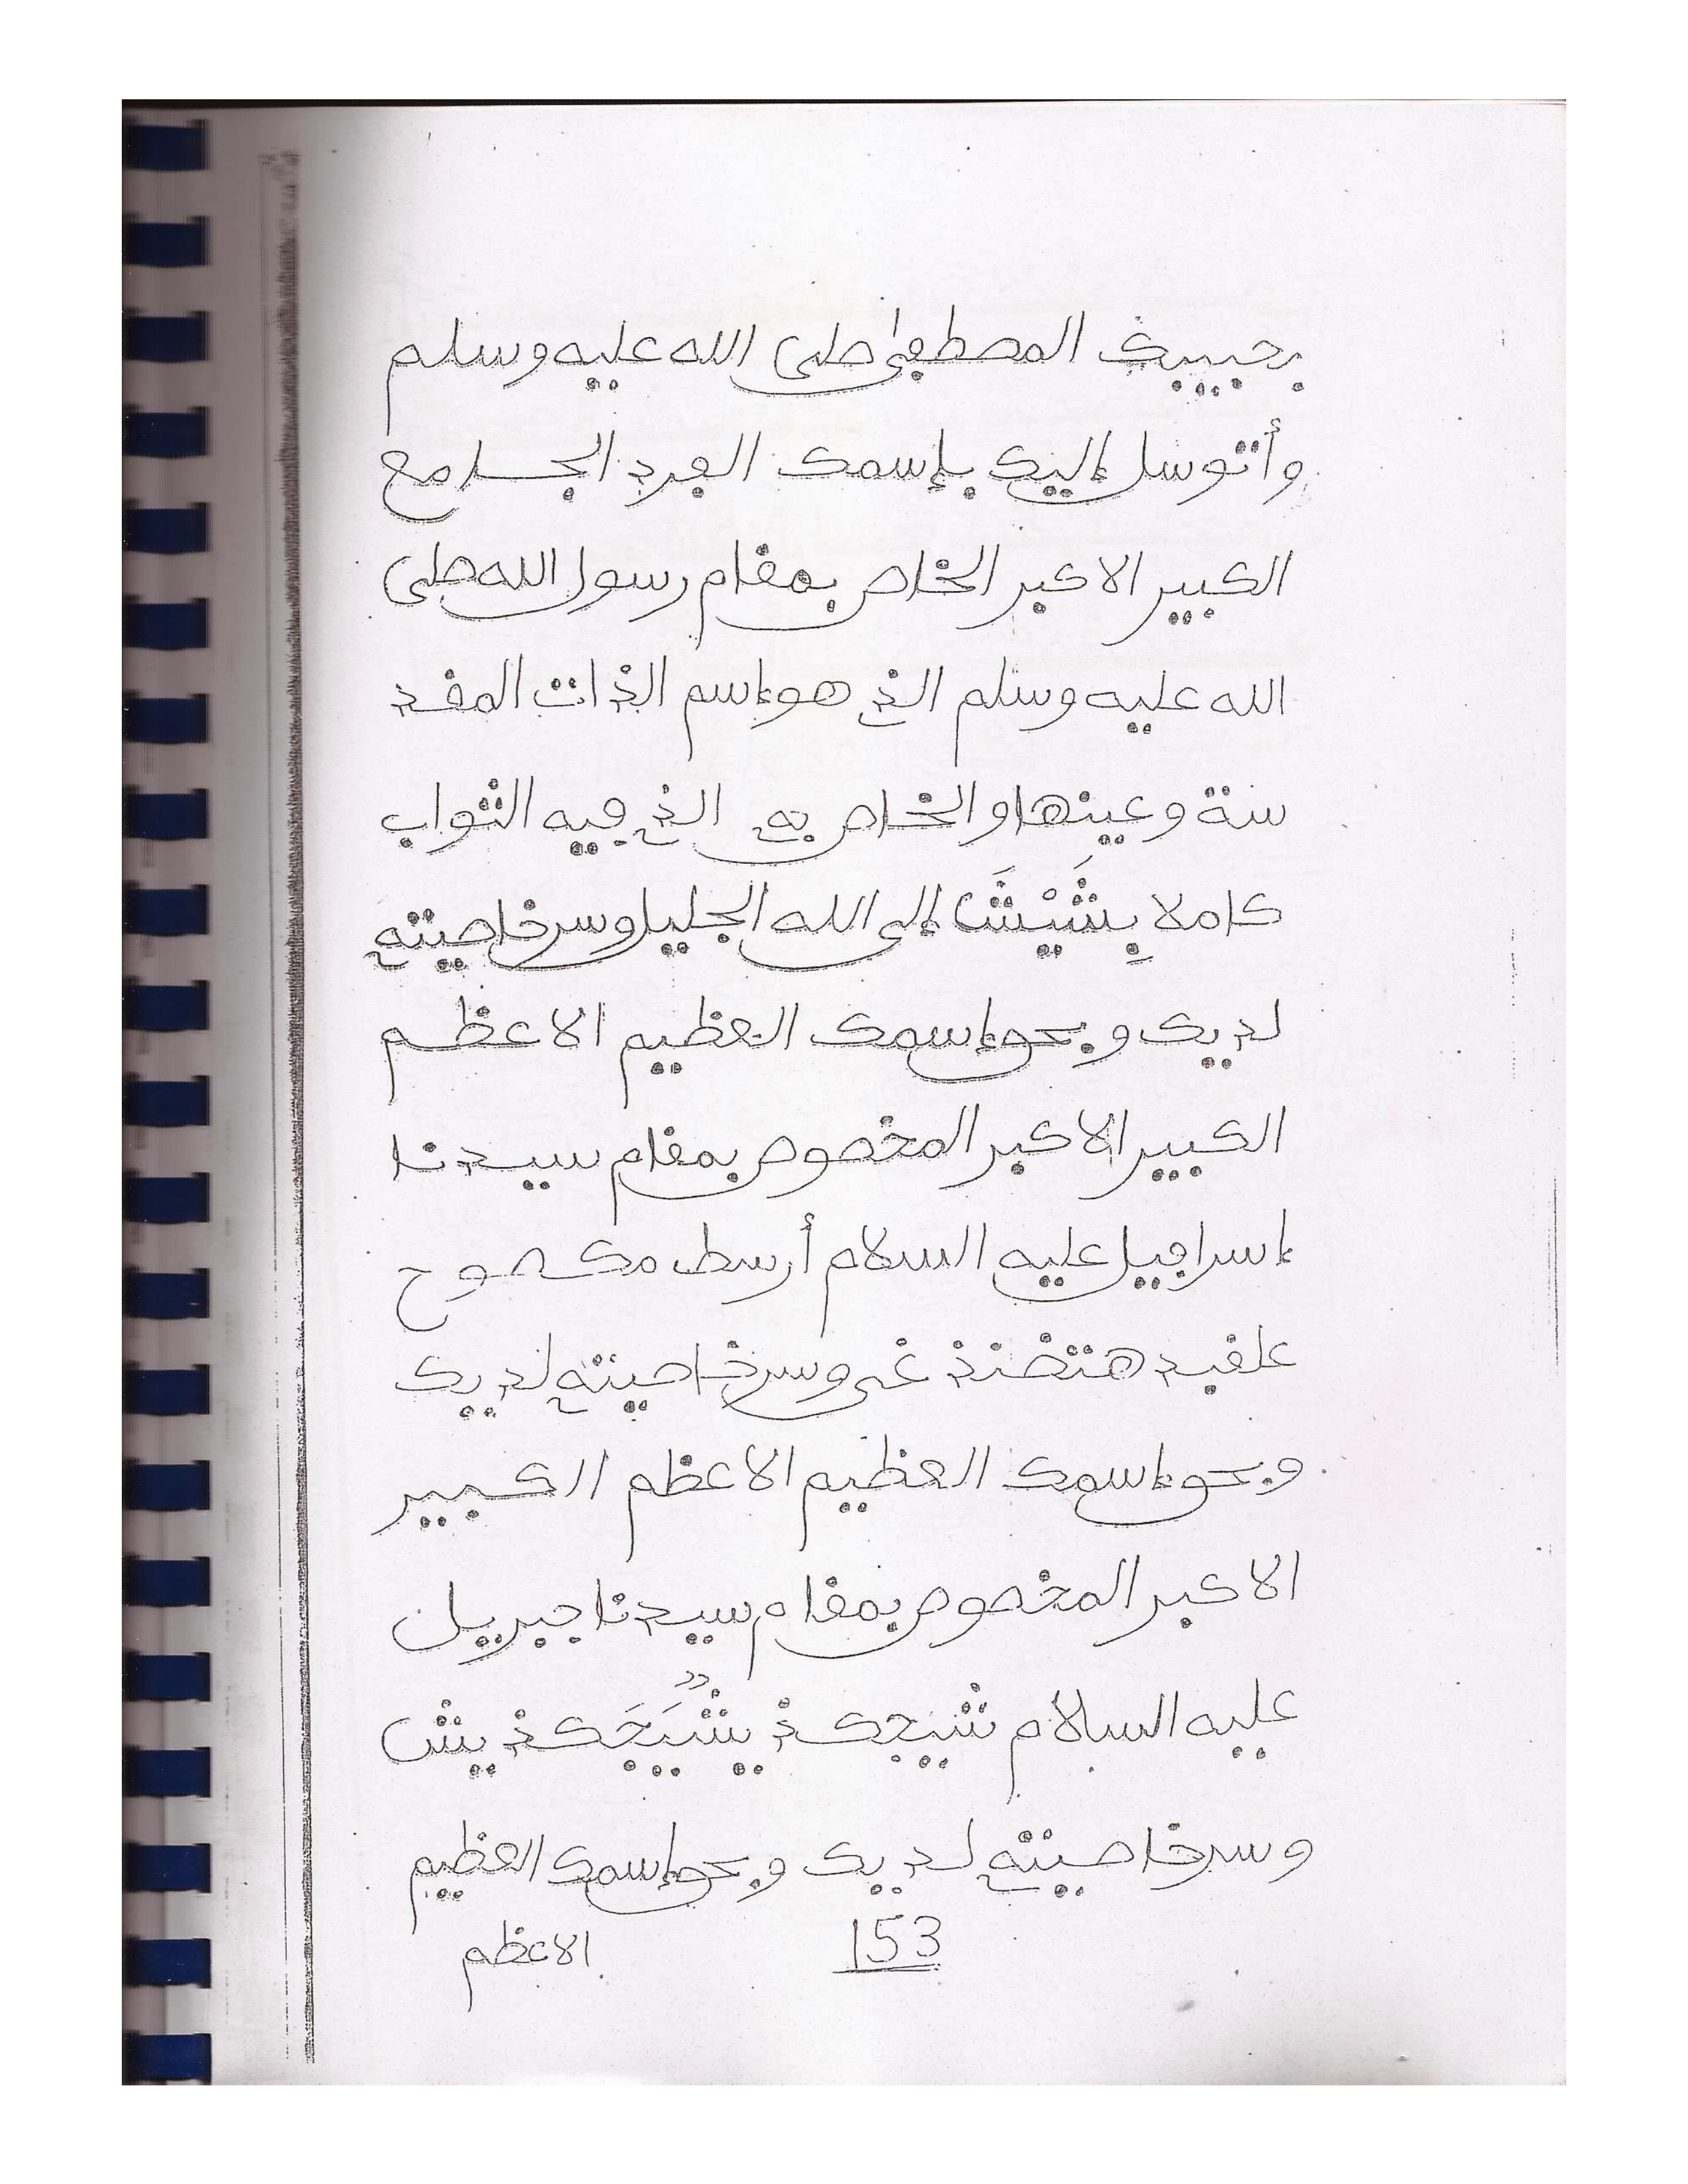 بحبيبك المصطفى صلى الله عليه وسلم
وأتوسل إليك بإسمك الفرد الجامع
الكبير الاكبر الخاص بمقام رسول الله صلى
الله عليه وسلم الذي هو إسم الذات المقد
سة وعينها والخاص به الذي فيه الثواب
كاملا إلى الله الجليل وسر خاصيته
لديك وبحق إسمك العظيم الاعظم
الكبير الاكبر المخصوص بمقام سيدنا
إسرافيل عليه السلام
وسر خاصيته لديك
وبحق إسمك العظيم الاعظم الكبير
الاكبر المخصوص بمقام سيدنا جبريل
عليه السلام
وسر خاصيته لديك وبحق إسمك العظيم
153 الاعظم